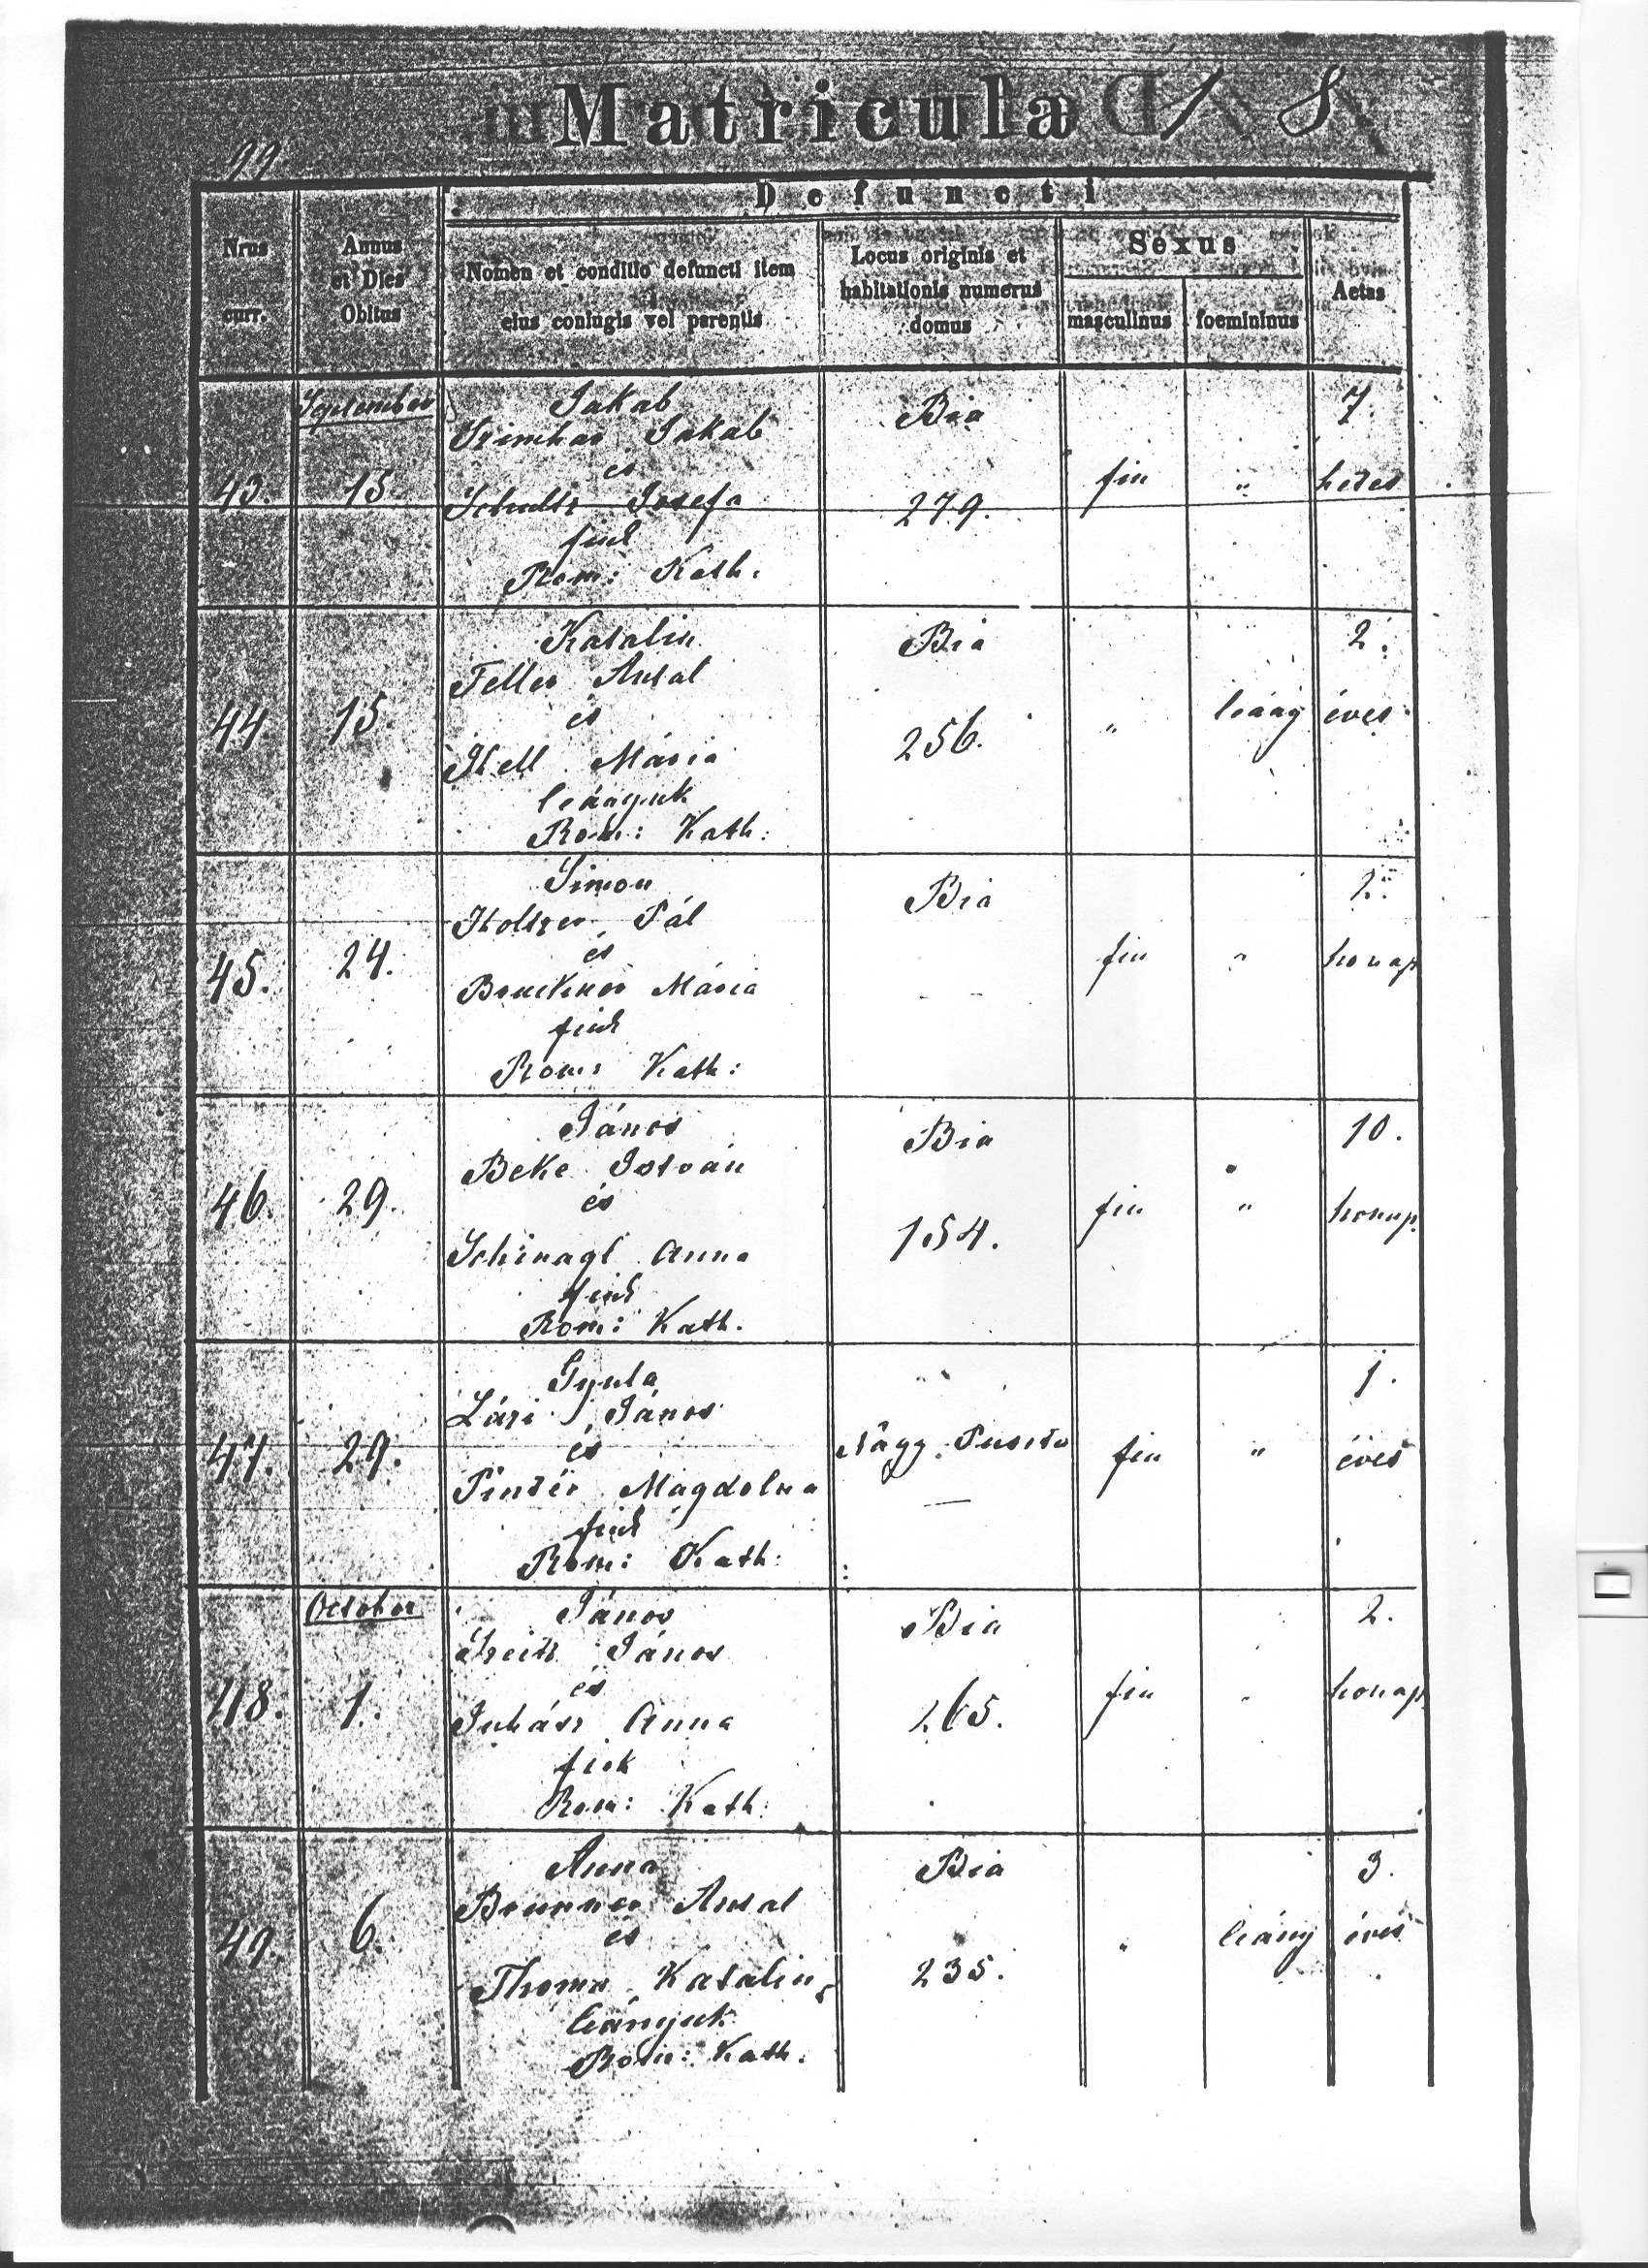 Matricula
18
99
Defuncti
Nrus
curr.
Annus
et Dies
Obitus
Nomen et conditio defuncti item
eius coniugis vel parentis
Locus originis et
habitationis numerus
domus
Sexus
masculinus
foemininus
Aetas
September
43.
15
Jakab
Jakab
és
Schultz Josefa
fiuk
Rom: Kath.
Bia
279.
fiu
"
7.
hetes
44
15.
Katalin
Feller Antal
és
Mária
leányuk
Rom: Kath:
Bia
256.
"
leány
2.
éves
45.
24.
Simon
Holtzer Pál
és
Bruckner Mária
fiuk
Rom: Kath:
Bia
- -
fiu
"
2.
honap
46.
29.
János
Beke István
és
Schinagl Anna
fiuk
Rom: Kath.
Bia
154.
fiu
"
10.
honap.
47.
29.
Gyula
Lázi János
és
Pintér Magdolna
fiuk
Rom: Kath:
Nágy Puszta
—
fiu
"
1.
éves
October
48.
1.
János
János
és
Juhász Anna
fiok
Rom: Kath:
Bia
265.
fiu
"
2.
honap
49.
6.
Anna
Brunner Antal
és
Thoma Katalin
leányuk
Rom: Kath:
Bia
235.
"
leány
3.
éves